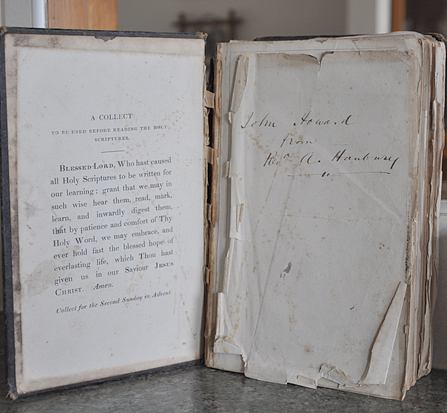 A COLLECT
TO BE USED BEFORE READING THE HOLY
SCRIPTURES.
BLESSED LORD, Who hast caused
all Holy Scriptures to be written for
our learning; grant that we may in
such wise hear them, read, mark,
learn, and inwardly digest them,
that by patience and comfort of Thy
Holy Word, we may embrace, and
ever hold fast the blessed hope of
everlasting life, which Thou hast
given us in our Saviour JESUS
CHRIST. Amen.
Collect for the Second Sunday in Advent
John Howard
from
Revd A. Hanbury